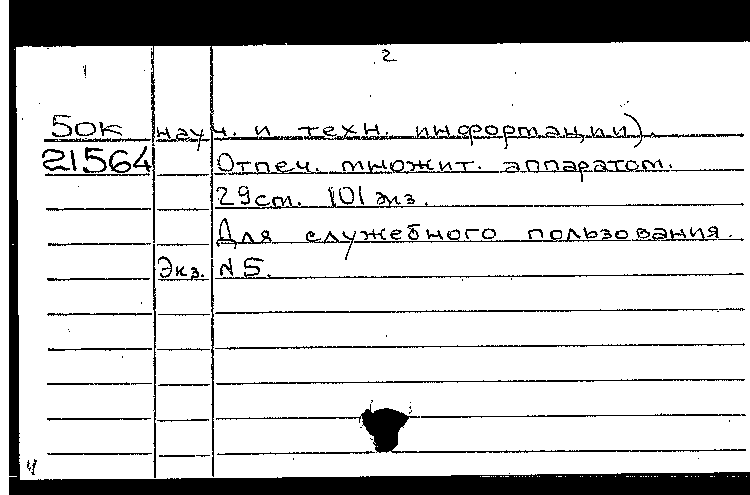 1 2
50к науч. и техн. информации).
21564 Отпеч. множит. аппаратом.
29см. 101 экз.
Для служебного пользования.
Экз. N5.